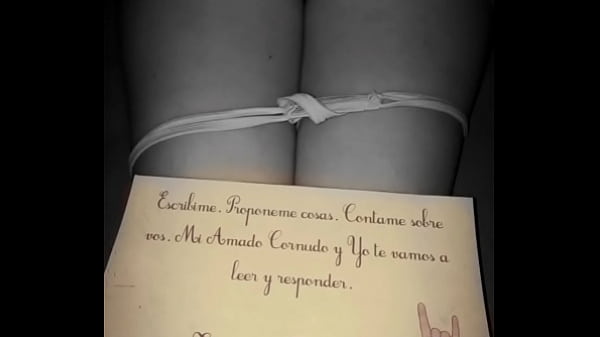 Escribime. Proponeme cosas. Contame sobre
vos. Mi Amado Cornudo y Yo te vamos a
leer y responder.